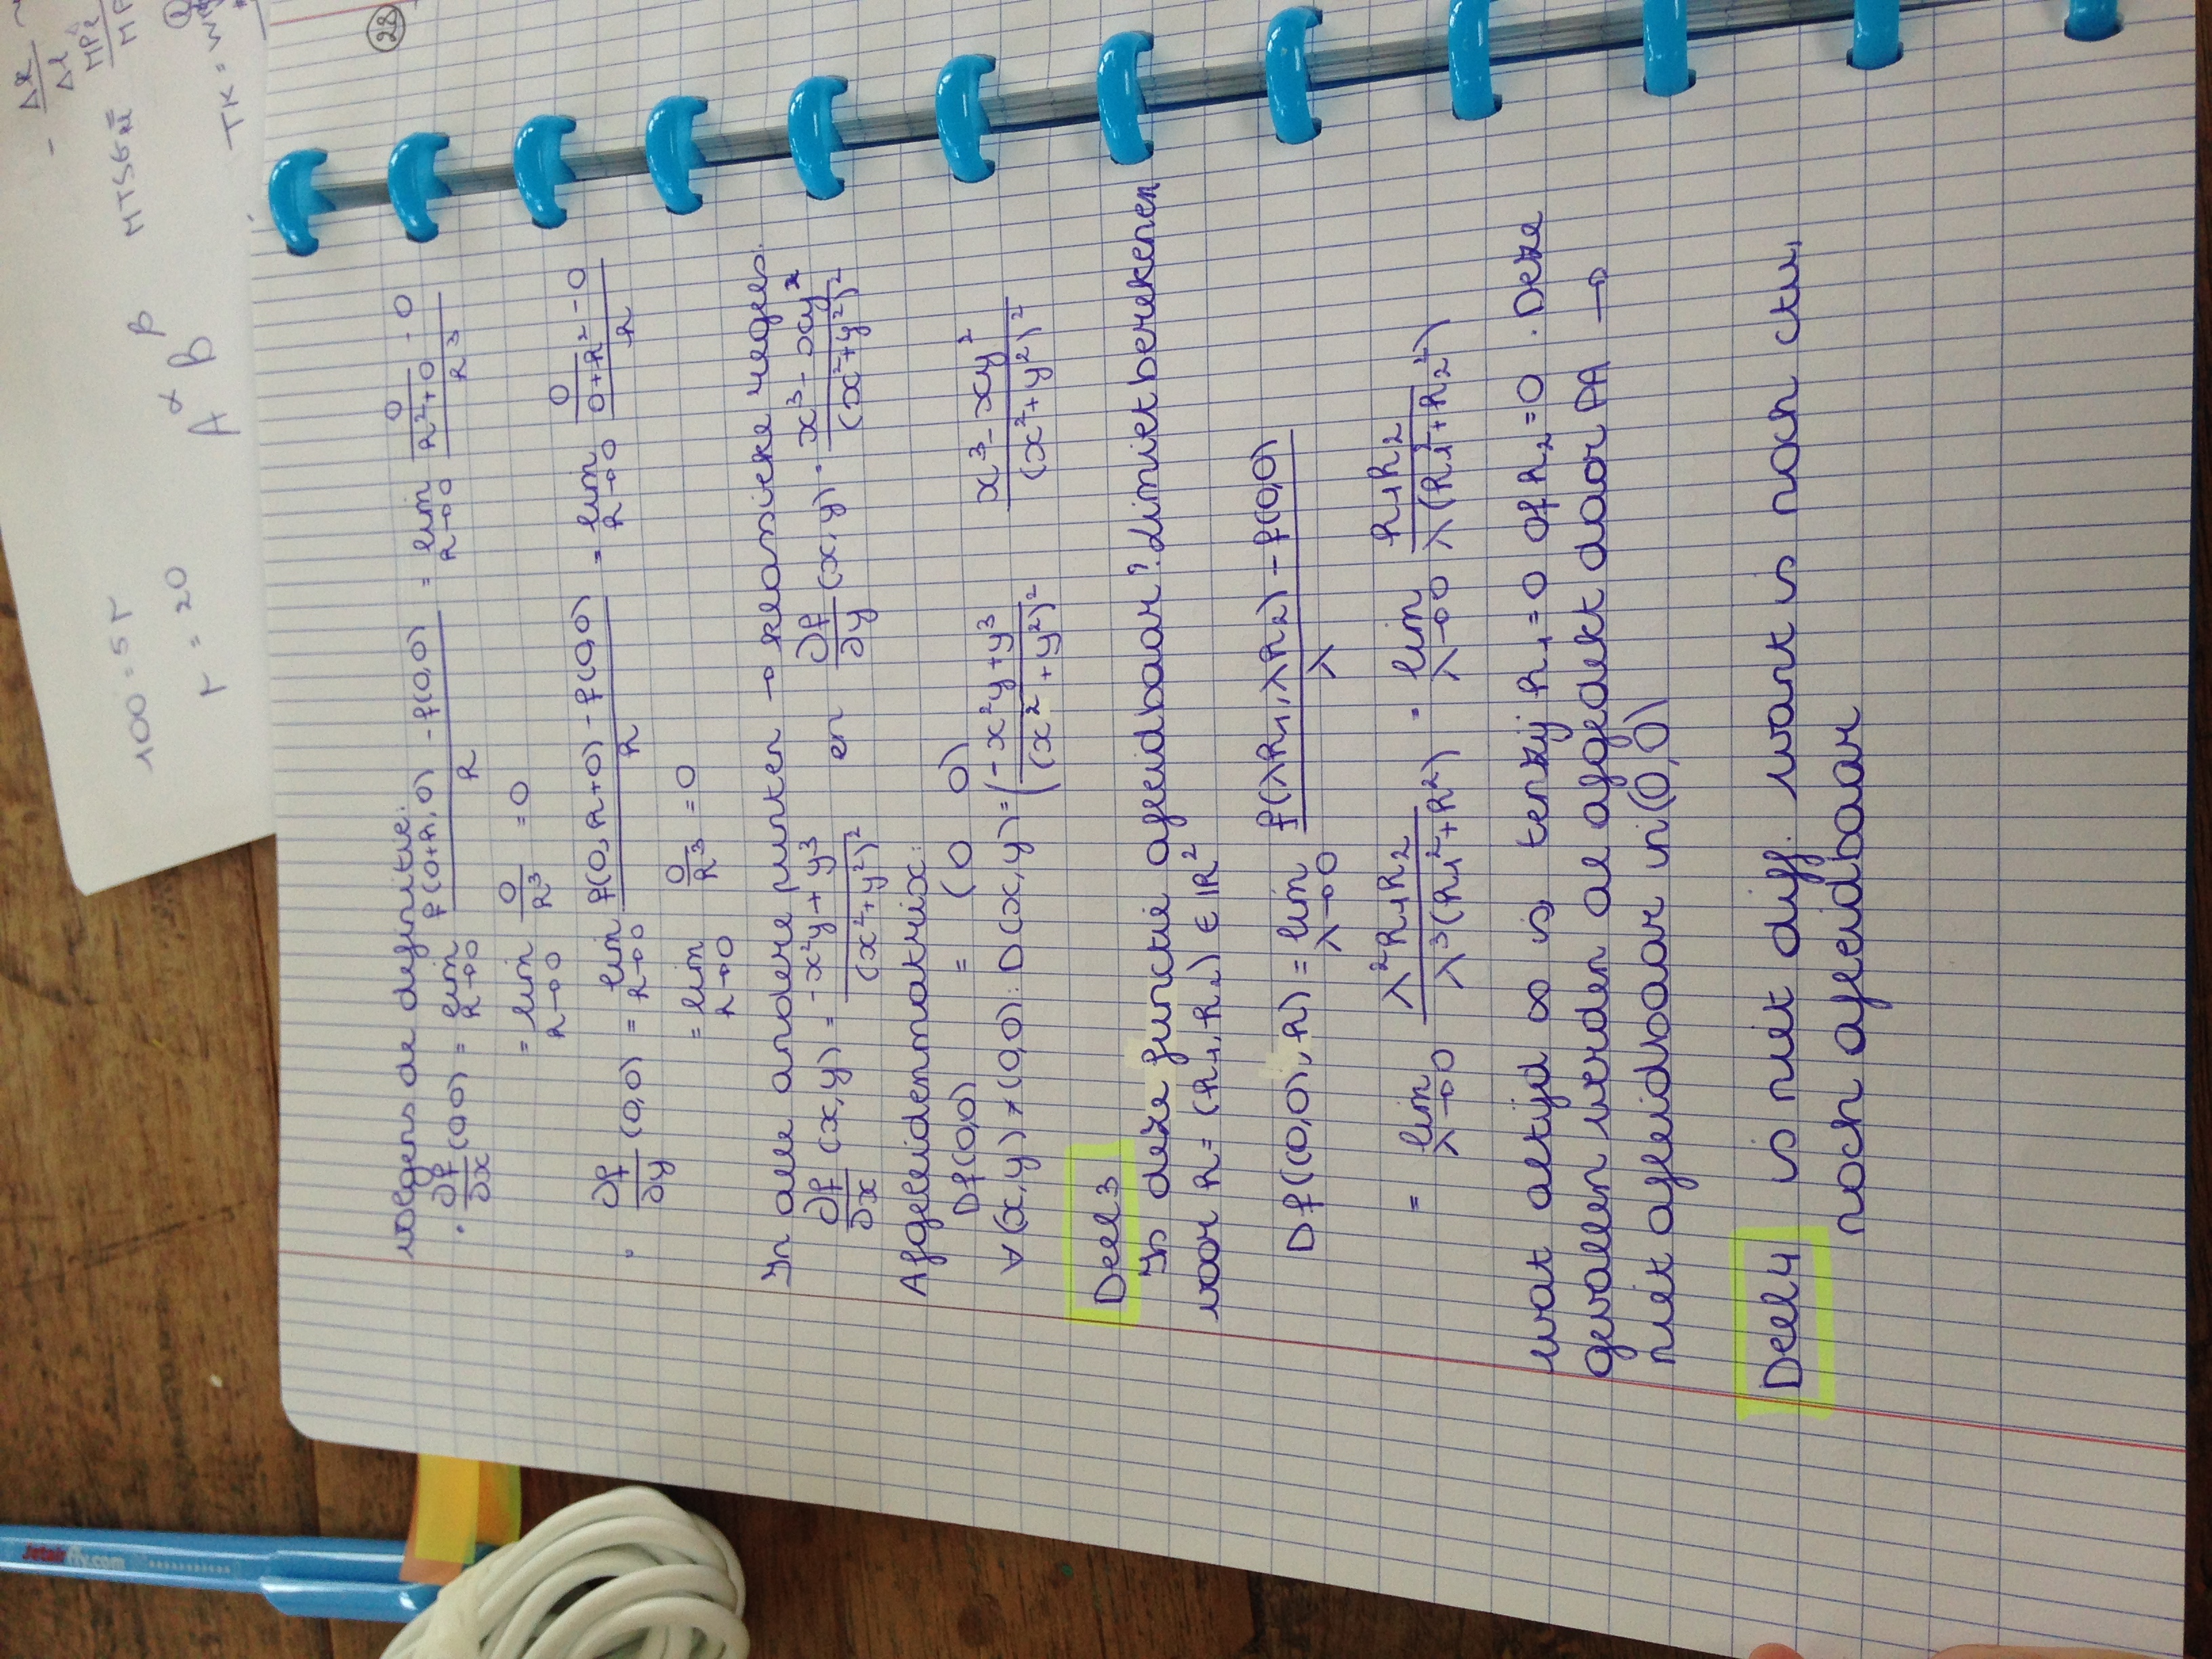 volgens de definitie:
· ∂f/∂x (0,0) = lim h→0 (f(0+h,0) - f(0,0))/h = lim h→0 (0/(h²+0) - 0)/h³
= lim h→0 0/h³ = 0
· ∂f/∂y (0,0) = lim h→0 (f(0,h+0) - f(0,0))/h = lim h→0 (0/(0+h²) - 0)/h
= lim h→0 0/h³ = 0
In alle andere punten → klassieke regels:
∂f/∂x (x,y) = (-x²y+y³)/(x²+y²)² en ∂f/∂y (x,y) = (x³-xy²)/(x²+y²)²
Afgeleidenmatrix:
Df(0,0) = (0 0)
∀(x,y) ≠ (0,0): D(x,y) = ((-x²y+y³)/(x²+y²)² (x³-xy²)/(x²+y²)²
Deel 3
Is deze functie afleidbaar? Limiet berekenen
voor h = (h₁,h₂) ∈ ℝ²
Df((0,0),h) = lim λ→0 (f(λh₁,λh₂) - f(0,0))/λ
= lim λ→0 λ²h₁h₂/λ³(h₁²+h₂²) = lim λ→0 h₁h₂/λ(h₁²+h₂²)
wat altijd ∞ is, tenzij h₁=0 of h₂=0. Deze
gevallen werden al afgedekt door PA →
niet afleidbaar in (0,0)
Deel 4 is niet diff. want is noch ctu,
noch afleidbaar
100 = 5r
r = 20
A^α B^β
MTSGR =
-TK = W
- Δk/Δl
Jetairfly.com
28